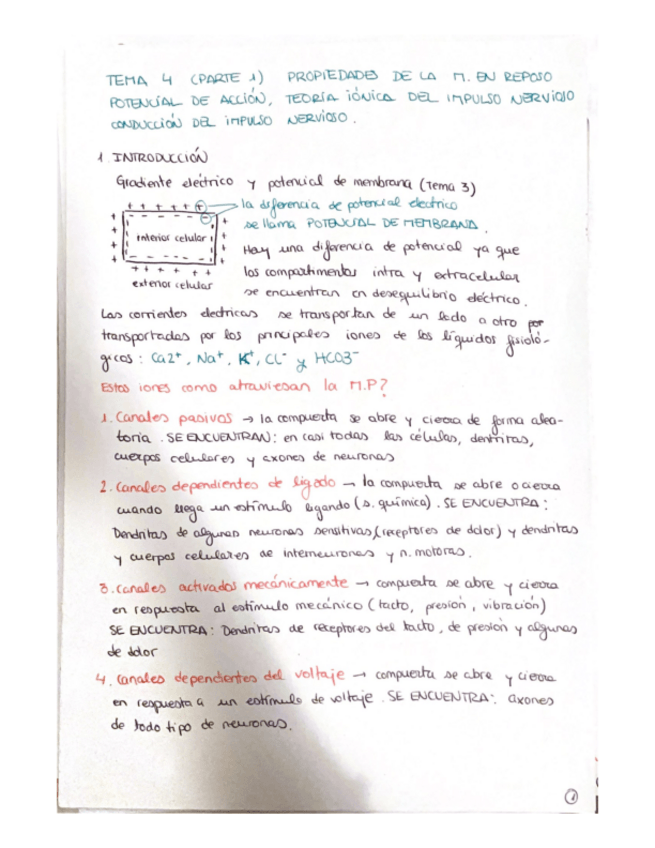 TEMA 4 (PARTE 1) PROPIEDADES DE LA M. EN REPOSO
POTENCIAL DE ACCIÓN, TEORÍA IÓNICA DEL IMPULSO NERVIOSO
CONDUCCIÓN DEL IMPULSO NERVIOSO.
1. INTRODUCCIÓN
Gradiente eléctrico y potencial de membrana (Tema 3)
la diferencia de potencial electrico
se llama POTENCIAL DE MEMBRANA.
interior celular
Hay una diferencia de potencial ya que
los compartimentos intra y extracelular
exterior celular
se encuentran en desequilibrio eléctrico.
Las corrientes electricas se transportan de un lado a otro por
transportadas por los principales iones de los líquidos fisioló-
gicos: Ca2+, Na+, K+, CL- y HCO3-
Estos iones como atraviesan la M.P?
1. Canales pasivos → la compuerta se abre y cierra de forma alea-
toria. SE ENCUENTRAN: en casi todas las células, dentritas,
cuerpos celulares y axones de neuronas
2. Canales dependientes de ligado → la compuerta se abre o cierra
cuando llega un estímulo ligando (s. química). SE ENCUENTRA:
Dendritas de algunas neuronas sensitivas (receptores de dolor) y dendritas
y cuerpos celulares de interneuronas y n. motoras.
3. Canales activados mecánicamente → compuerta se abre y cierra
en respuesta al estímulo mecánico (tacto, presión, vibración)
SE ENCUENTRA: Dendritas de receptores del tacto, de presion y algunas
de dolor
4. Canales dependientes del voltaje → compuerta se abre y cierra
en respuesta a un estímulo de voltaje. SE ENCUENTRA: axones
de todo tipo de neuronas.
1